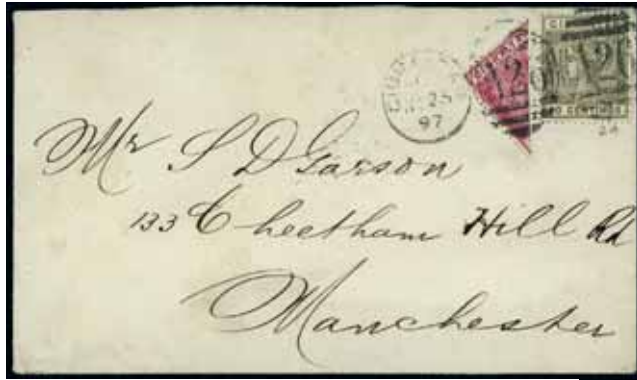 97
Mr S D Garson
133 Cheetham Hill Rd
Manchester